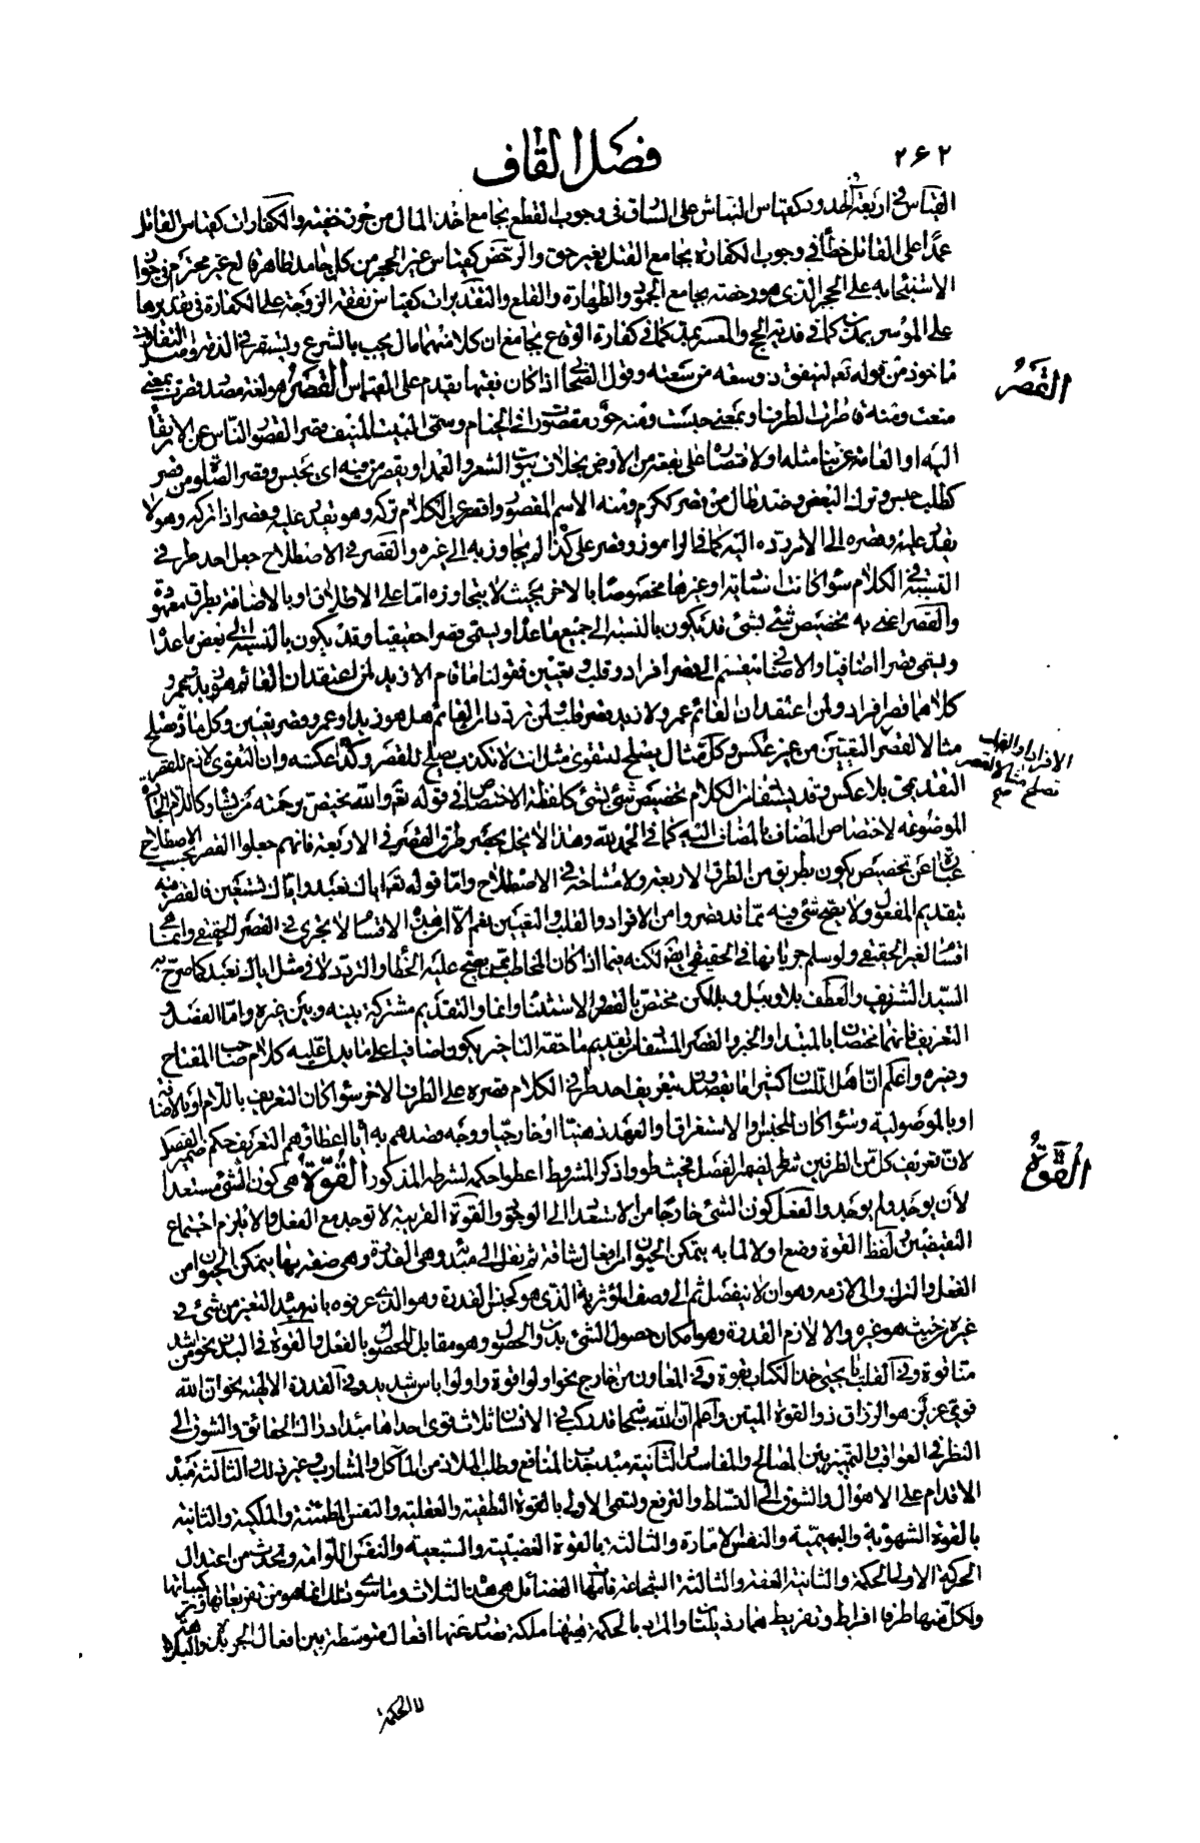 ٢٦٢
فصل القاف
القياس في اربعة الحدود كقياس النباش على السارق في وجوب القطع بجامع اخذ المال من حرز خفية والكفارات كقياس القاتل
عمدا على القاتل خطأ في وجوب الكفارة بجامع القتل بغير حق والرخص كقياس غير الحجر من كل جامد طاهر قالع غير محترم في جواز
الاستنجاء به على الحجر الذي هو رخصة بجامع الجمود والطهارة والقلع والتقديرات كقياس نفقة الزوجة على الكفارة في تقديرها
على الموسر بمدين كما في فدية الحج والمعسر بمد كما في كفارة الوقاع بجامع ان كلا منهما مال يجب بالشرع ويستقر في الذمة
ماخوذ من قوله تعالى لينفق ذو سعة من سعته وقول الصحابي اذا كان فقيها يقدم على القياس القصر هو لغة مصدر قصرت بمعنى
منعت ومنه قاصرات الطرف وبمعنى حبست ومنه حور مقصورات في الخيام وسمي البيت المنيف قصرا لقصور الناس عن الارتقاء
اليه او العامة عن بناء مثله او لاقتصاره على بقعة من الارض بخلاف بيوت الشعر والعمد او يقصر من فيه اي يحبس وقصر الصلوة من قصر
كطلب حبس وترك البعض وضد طال من قصر ككرم ومنه الاسم المقصور واقصر عن الكلام تركه وهو يقدر عليه وقصر اذا تركه وهو لا
يقدر عليه وقصره الى الامر رده اليه كما في الراموز وقصر على كذا لم يجاوز به الى غيره والقصر في الاصطلاح جعل احد طرفي
النسبة في الكلام سواء كانت اسنادية او غيرها مخصوصا بالاخر بحيث لا يتجاوزه اما على الاطلاق او بالاضافة بطرق معهودة
والقصر اعني به تخصيص شئ بشئ قد يكون بالنسبة الى جميع ما عداه ويسمى قصرا حقيقيا وقد يكون بالنسبة الى بعض ما عداه
ويسمى قصرا اضافيا والاضافي ينقسم الى قصر افراد وقلب وتعيين فقولنا ما قام الا زيد لمن اعتقد ان القائم هو زيد وعمرو
كلاهما قصر افراد ولمن اعتقد ان القائم عمرو لا زيد قصر قلب ولمن تردد ان القائم هل هو زيد او عمرو قصر تعيين وكل مادة تصلح
مثالا لقصر التعيين من غير عكس وكل مثال يصلح للتقوي مثل انت لا تكذب يصلح للقصر وكذا عكسه وان التقوي لازم للقصر
التقديمي بلا عكس وقد يستفاد من الكلام تخصيص شئ بشئ كلفظة الاختصاص في قوله تعالى والله يختص برحمته من يشاء وكاللام الجارة
الموضوعة لاختصاص المضاف بالمضاف اليه كما في الحمد لله وهذا لا يخل بحصر طرق القصر في الاربعة فانهم جعلوا القصر بحسب الاصطلاح
عبارة عن تخصيص يكون بطريق من الطرق الاربعة ولا مشاحة في الاصطلاح واما قوله تعالى اياك نعبد واياك نستعين فالقصر فيه
بتقديم المفعول ولا يصح شئ فيه مما قد قصروا من الافراد والقلب والتعيين نعم الا ان هذه الاقسام لا تجري في القصر الحقيقي وانما هي
اقسام الغير الحقيقي ولو سلم جريانها في الحقيقي ايضا لكنه فيما اذا كان المخاطب ممن يصح عليه الخطأ والتردد لا في مثل اياك نعبد كما صرح به
السيد الشريف والعطف بلا وببل وبلكن مختص بالقصر والاستثناء وانما والتقديم مشتركة بينه وبين غيره واما الفصل و
التعريف فانهما مختصان بالمبتدأ والخبر والقصر المستفاد من تقديم ما حقه التاخير يكون اضافيا على ما يدل عليه كلام صاحب المفتاح
وغيره واعلم ان اهل اللسان كثيرا ما يقصدون بتعريف احد طرفي الكلام قصره على الطرف الاخر سواء كان التعريف باللام او بالاضافة
او بالموصولية وسواء كان للجنس والاستغراق او العهد ذهنيا او خارجيا ووجه قصدهم به اياه اعطاؤهم التعريف حكم ضمير الفصل
لان تعريف كل من الطرفين شرط لضمير الفصل فحيث وجد ذكر المشروط اعطوا حكمه لشرطه المذكور القوة هي كون الشئ مستعدا
لان يوجد ولم يوجد والفعل كون الشئ خارجا من الاستعداد الى الوجود والقوة القريبة لا توجد مع الفعل والا يلزم اجتماع
النقيضين لفظ القوة وضع اولا لما به يتمكن الحيوان من افعال شاقة ثم نقل الى مبدئه وهي القدرة وهي صفة بها يتمكن الحيوان من
الفعل والترك والى لازمه وهو ان لا ينفعل ثم الى وصف المؤثرية الذي هو كجنس القدرة وهو الذي عرفوه بانه مبدأ التغير من شئ في
غيره من حيث هو غيره والى لازم القدرة وهو امكان حصول الشئ بدون الحصول وهو مقابل للحصول بالفعل والقوة في البدن نحو من اشد
منا قوة وفي القلب يا يحيى خذ الكتاب بقوة وفي المعاون من خارج نحو اولوا قوة واولوا باس شديد وفي القدرة الالهية نحو ان الله
قوي عزيز هو الرزاق ذو القوة المتين واعلم ان الله سبحانه قد ركب في الانسان ثلاث قوى احداها مبدأ ادراك الحقائق والشوق الى
النظر في العواقب والتمييز بين المصالح والمفاسد والثانية مبدأ جذب المنافع وطلب الملاذ من المآكل والمشارب وغير ذلك والثالثة مبدأ
الاقدام على الاهوال والشوق الى التسلط والترفع وتسمى الاولى بالقوة النطقية والعقلية والنفس المطمئنة والملكية والثانية
بالقوة الشهوية والبهيمية والنفس الامارة والثالثة بالقوة الغضبية والسبعية والنفس اللوامة وتحدث من اعتدال
الحركة الاولى الحكمة والثانية العفة والثالثة الشجاعة فامهات الفضائل هي هذه الثلاث وما سوى ذلك انما هو من تفريعاتها وتركيباتها
ولكل منها طرفا افراط وتفريط هما رذيلتان والمراد بالحكمة هيهنا ملكة تصدر عنها افعال متوسطة بين افعال الجربزة والبلاهة
القصر
الافراد او القلب
تصلح مثالا لقصر
صح
القوة
لا الحكمة